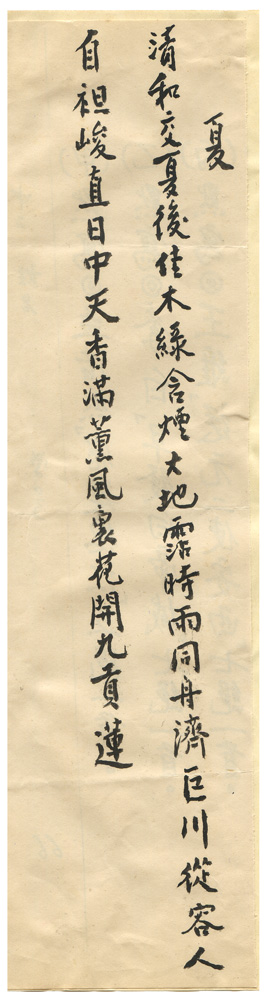 夏
清和交夏後佳木綠含煙大地霑時雨同舟濟巨川從容人
自袒峻直日中天香滿薰風裏花開九貢蓮